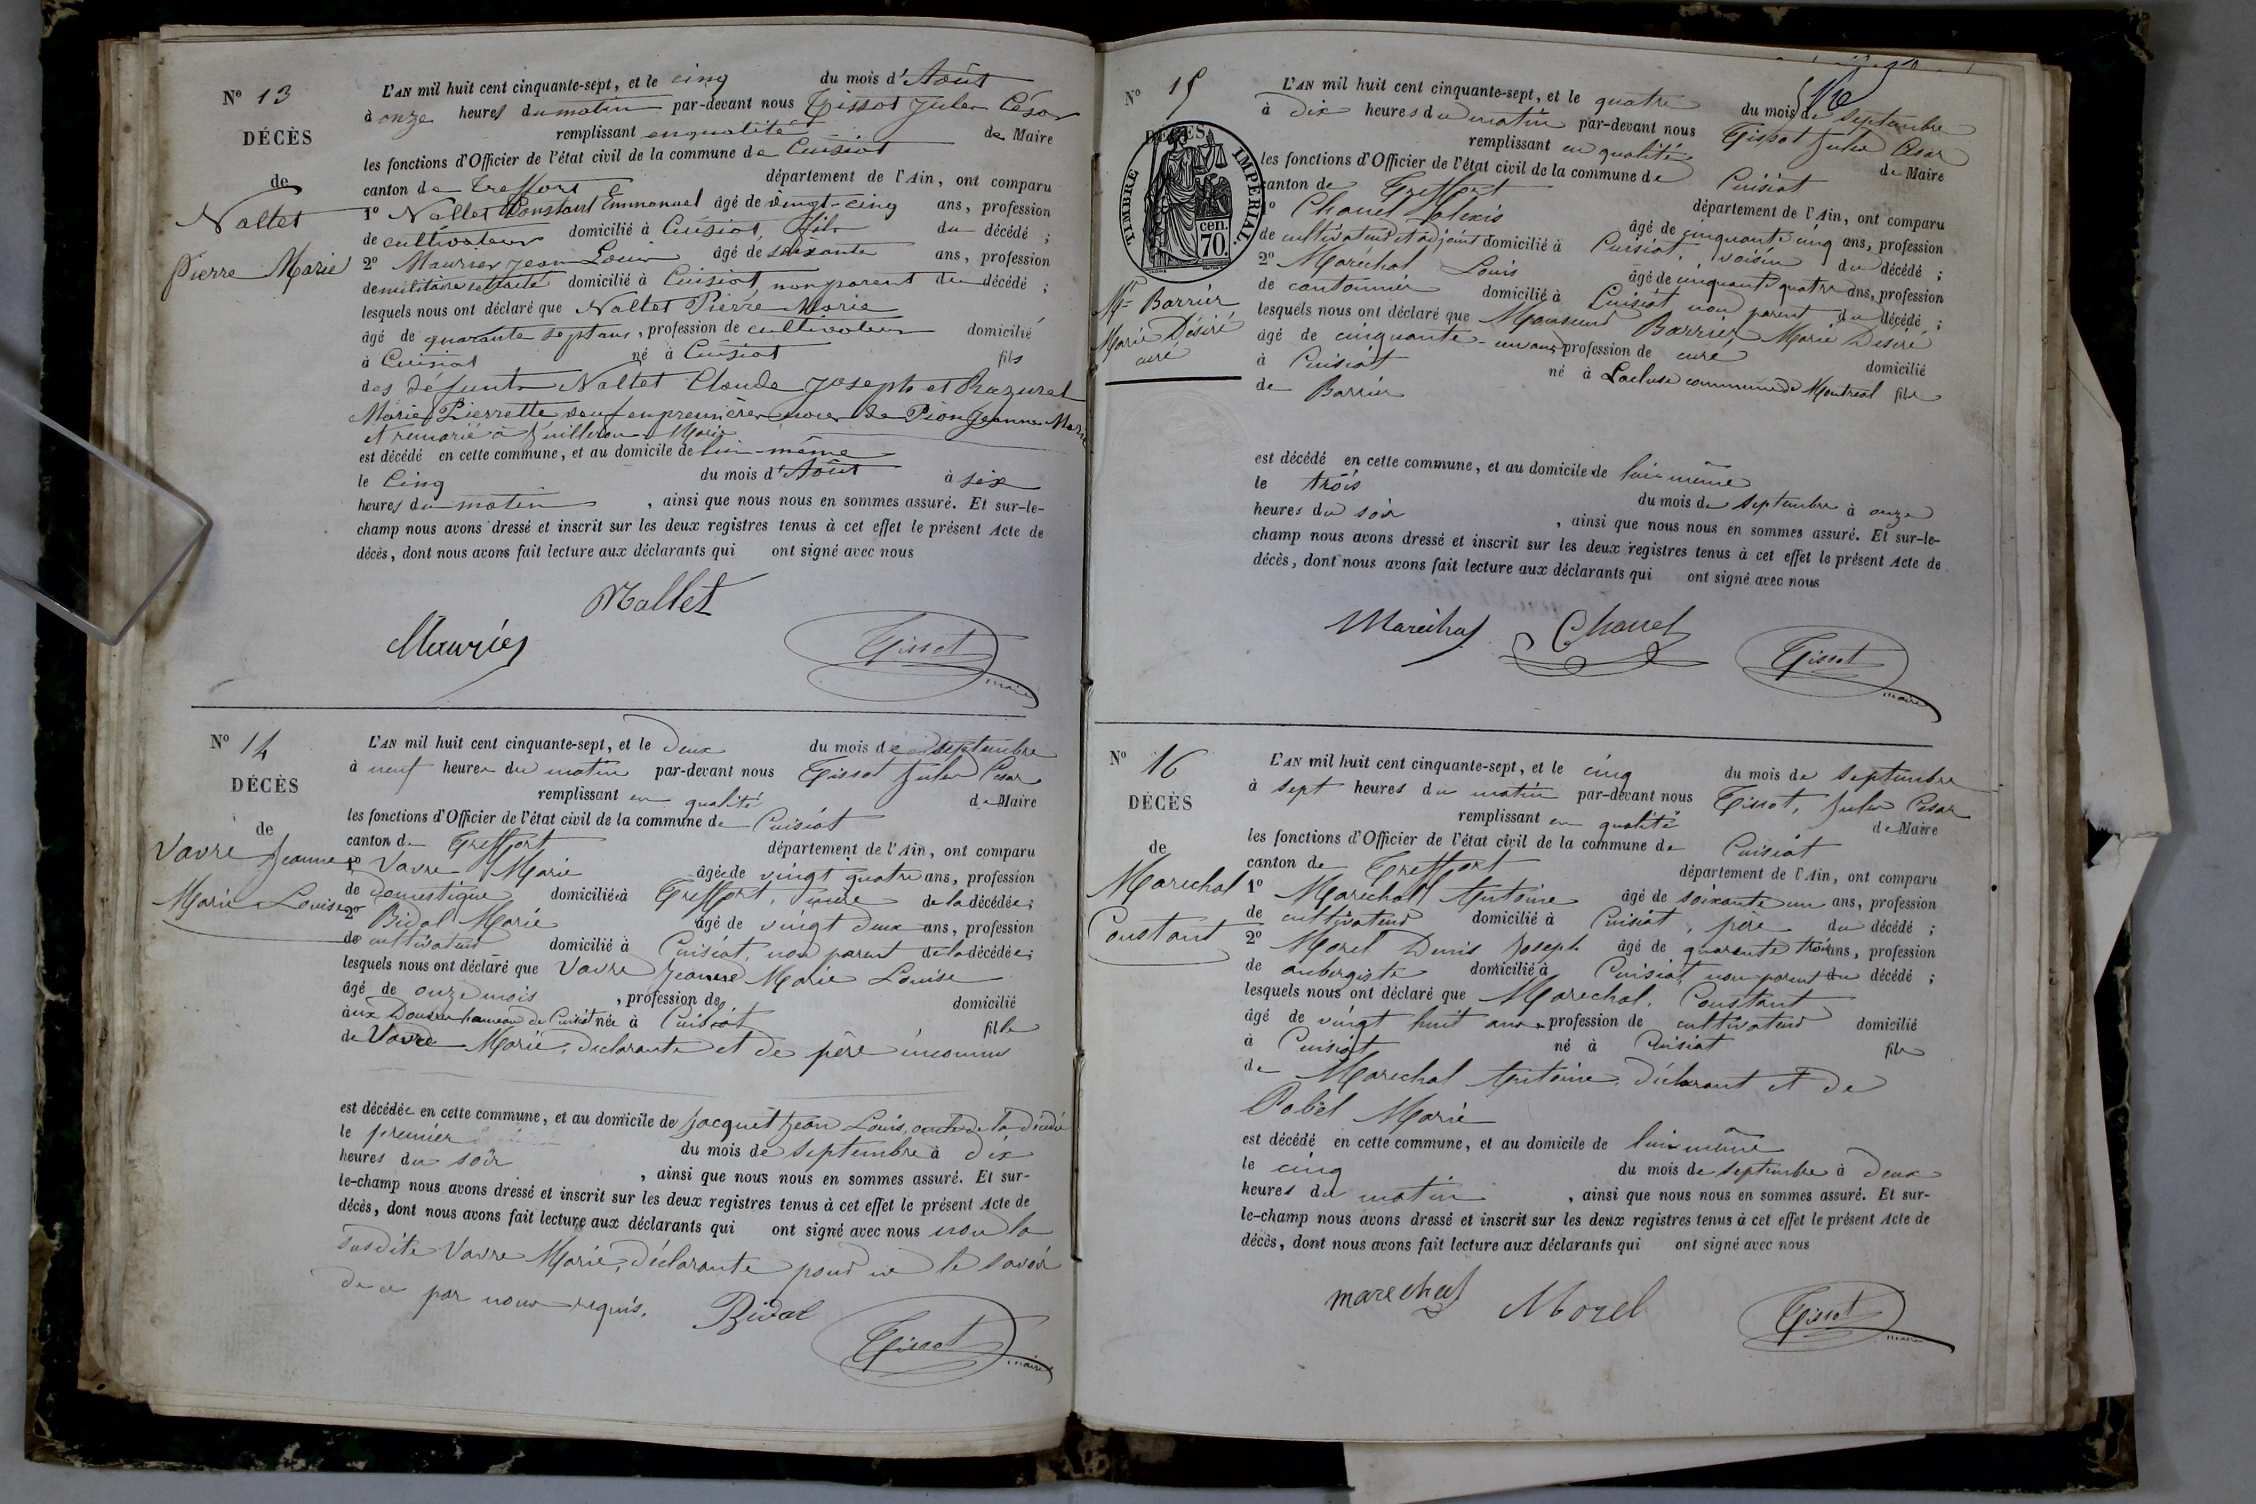 N° 13
DÉCÈS
de
Naltet
Pierre Marie
L'AN mil huit cent cinquante-sept, et le cinq du mois d'Août
à onze heures du matin par-devant nous Tissot Jules César
remplissant en qualité de Maire
les fonctions d'Officier de l'état civil de la commune de Cuisiat
canton de Treffort département de l'Ain, ont comparu
1° Nallet Constant Emmanuel âgé de vingt-cinq ans, profession
de cultivateur domicilié à Cuisiat, fils du décédé ;
2° Maurier Jean Louis âgé de soixante ans, profession
de militaire retraité domicilié à Cuisiat, non parent du décédé ;
lesquels nous ont déclaré que Naltet Pierre Marie
âgé de quarante sept ans, profession de cultivateur domicilié
à Cuisiat né à Cuisiat fils
des défunts Naltet Claude Joseph et Bazuret
Marie Pierrette veuf en premières noces de Pion Jeanne Marie
et remarié à Marie
est décédé en cette commune, et au domicile de lui-même
le Cinq du mois d'Août à six
heures du matin, ainsi que nous nous en sommes assuré. Et sur-le-
champ nous avons dressé et inscrit sur les deux registres tenus à cet effet le présent Acte de
décès, dont nous avons fait lecture aux déclarants qui ont signé avec nous
Nallet
Mauriez
Tissot
maire
N° 14
DÉCÈS
de
Vavre Jeanne
Marie Louise
L'AN mil huit cent cinquante-sept, et le deux du mois de septembre
à neuf heures du matin par-devant nous Tissot Jules Cesar
remplissant en qualité de Maire
les fonctions d'Officier de l'état civil de la commune de Cuisiat
canton de Treffort département de l'Ain, ont comparu
1° Vavre Marie âgée de vingt quatre ans, profession
de domestique domiciliée à Treffort, mère de la décédée ;
2° Bidal Marie âgé de vingt deux ans, profession
de cultivateur domicilié à Cuisiat, non parent de la décédée ;
lesquels nous ont déclaré que Vavre Jeanne Marie Louise
âgé de onze mois, profession de domicilié
aux hameau de Cuisiat née à Cuisiat fille
de Vavre Marie, déclarante et de père inconnu
est décédée en cette commune, et au domicile de Jacquet Jean Louis, de la décédée
le premier du mois de septembre à dix
heures du soir, ainsi que nous nous en sommes assuré. Et sur-
le-champ nous avons dressé et inscrit sur les deux registres tenus à cet effet le présent Acte de
décès, dont nous avons fait lecture aux déclarants qui ont signé avec nous non la
susdite Vavre Marie, déclarante pour ne le savoir
de ce par nous requis.
Bidal
Tissot
maire
N° 15
DÉCÈS
TIMBRE IMPÉRIAL
70 cen.
Mr Barrier
Marie Désiré
curé
L'AN mil huit cent cinquante-sept, et le quatre du mois de septembre
à dix heures du matin par-devant nous Tissot Jules Cesar
remplissant en qualité de Maire
les fonctions d'Officier de l'état civil de la commune de Cuisiat
canton de Treffort département de l'Ain, ont comparu
1° Chanel Alexis âgé de cinquante cinq ans, profession
de cultivateur et adjoint domicilié à Cuisiat, voisin du décédé ;
2° Marechal Louis âgé de cinquante quatre ans, profession
de cantonnier domicilié à Cuisiat non parent du décédé ;
lesquels nous ont déclaré que Monsieur Barrier, Marie Désiré
âgé de cinquante-un ans, profession de curé domicilié
à Cuisiat né à Lacluse commune de Montreal fils
de Barrier
est décédé en cette commune, et au domicile de lui-même
le trois du mois de septembre à onze
heures du soir, ainsi que nous nous en sommes assuré. Et sur-le-
champ nous avons dressé et inscrit sur les deux registres tenus à cet effet le présent Acte de
décès, dont nous avons fait lecture aux déclarants qui ont signé avec nous
Marechal
Chanel
Tissot
maire
N° 16
DÉCÈS
de
Marechal
Constant
L'AN mil huit cent cinquante-sept, et le cinq du mois de septembre
à sept heures du matin par-devant nous Tissot, Jules Cesar
remplissant en qualité de Maire
les fonctions d'Officier de l'état civil de la commune de Cuisiat
canton de Treffort département de l'Ain, ont comparu
1° Marechal Antoine âgé de soixante un ans, profession
de cultivateur domicilié à Cuisiat, père du décédé ;
2° Morel Denis Joseph âgé de quarante trois ans, profession
de aubergiste domicilié à Cuisiat, non parent du décédé ;
lesquels nous ont déclaré que Marechal, Constant
âgé de vingt huit ans profession de cultivateur domicilié
à Cuisiat né à Cuisiat fils
de Marechal Antoine, déclarant et de
Pobel Marie
est décédé en cette commune, et au domicile de lui-même
le cinq du mois de septembre à deux
heures du matin, ainsi que nous nous en sommes assuré. Et sur-
le-champ nous avons dressé et inscrit sur les deux registres tenus à cet effet le présent Acte de
décès, dont nous avons fait lecture aux déclarants qui ont signé avec nous
marechal
Morel
Tissot
maire